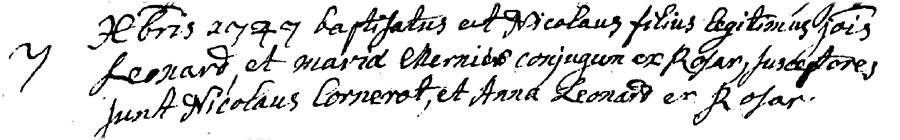 Xbris 1747 baptisatus est Nicolaus filius legitimus jois
7 Leonard, et maria Mernier conjugum ex Rosar, susceptores
sunt Nicolaus Cornerot, et Anna Leonard ex Rosar.